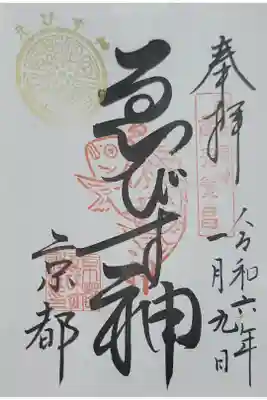 奉拝
令和六年
一月九日
ゑびす神
京都